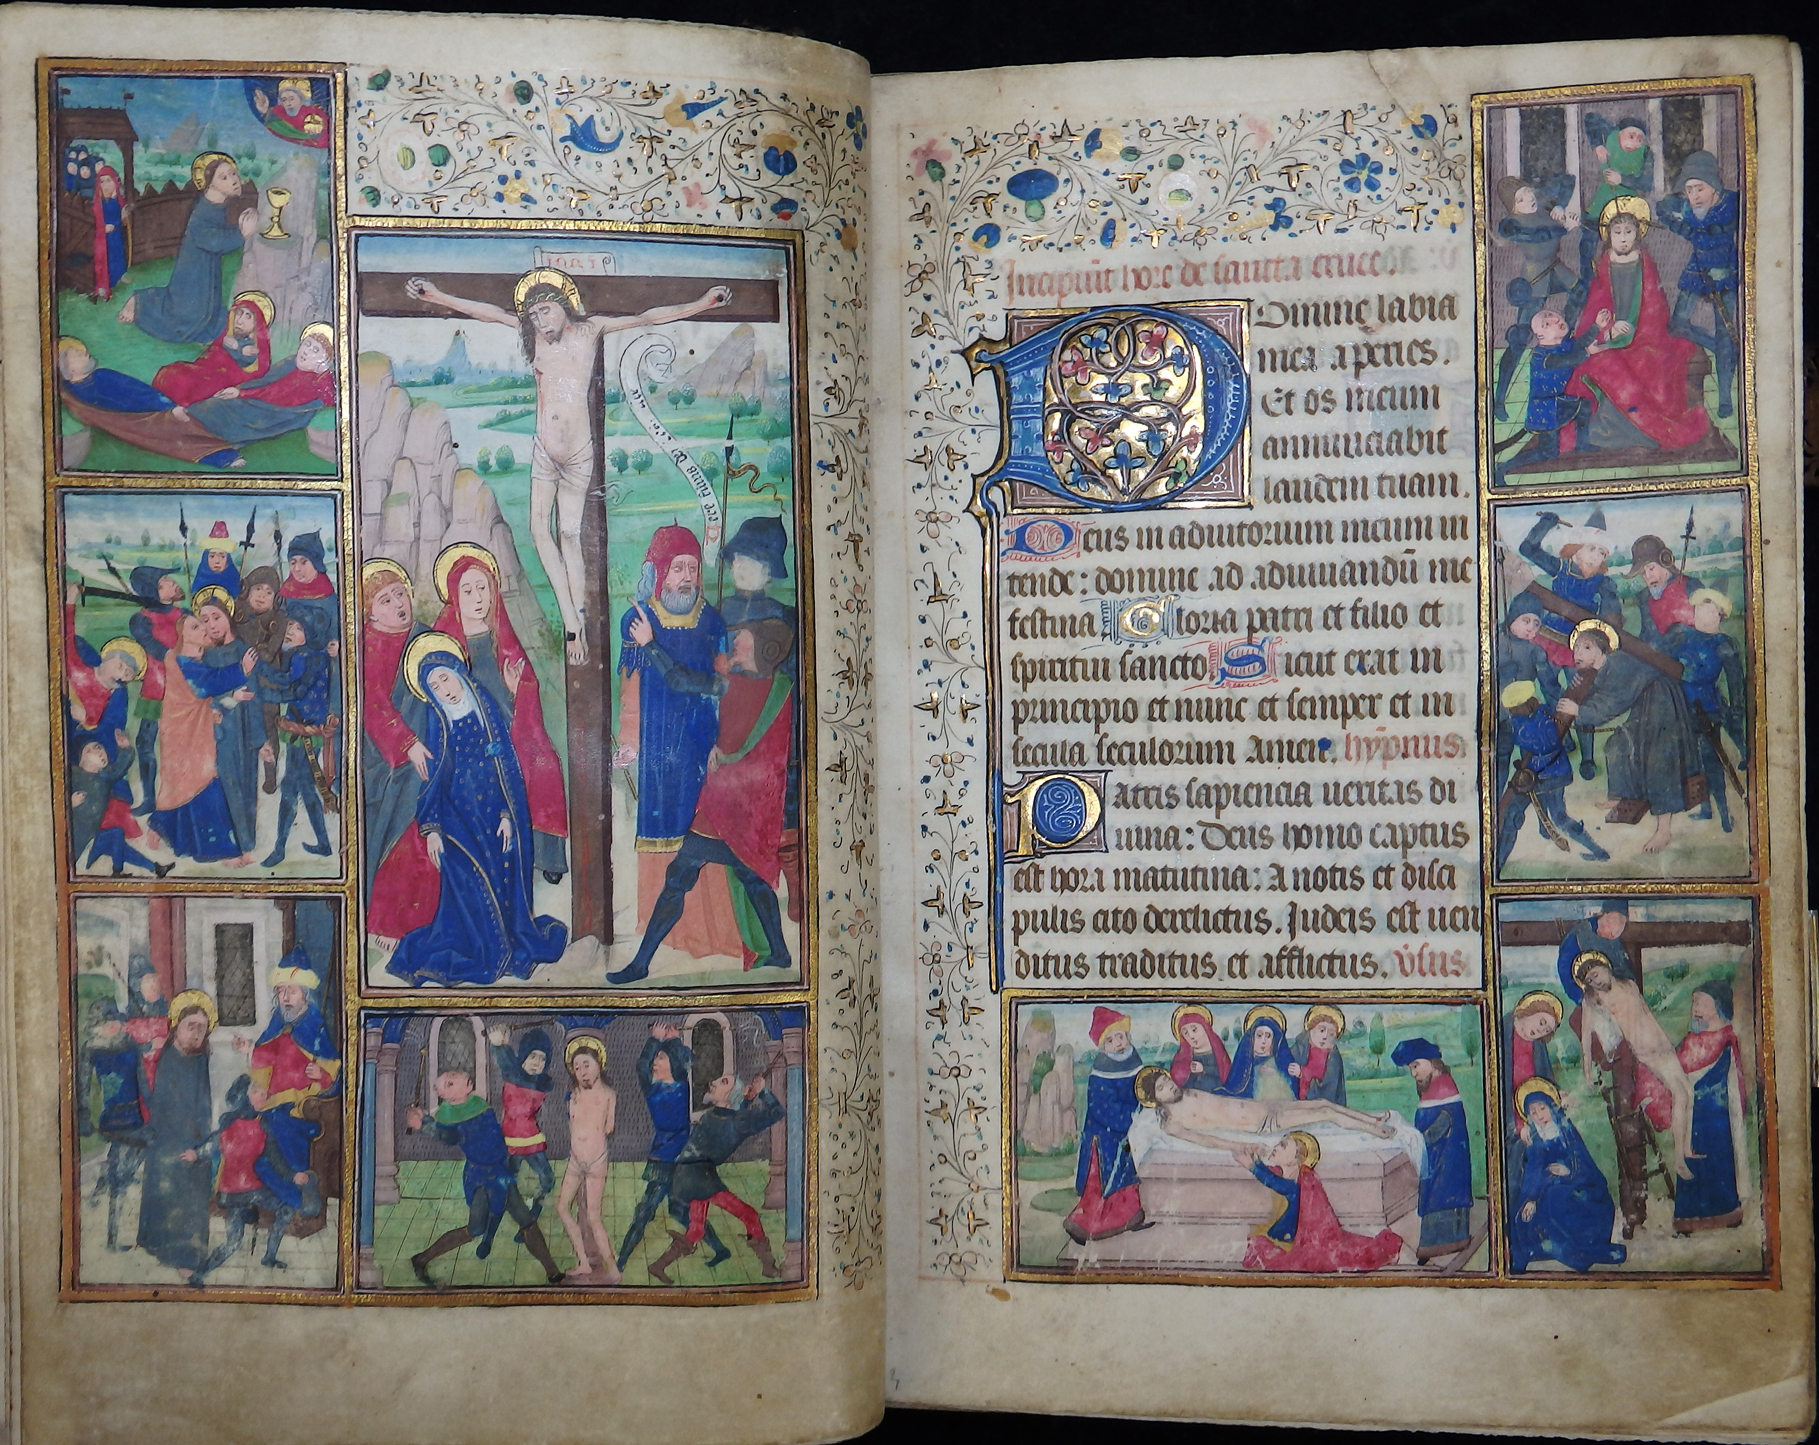 inri
Vere filius dei erat iste
Incipiūt hore de sancta cruce.
Domine labia
mea aperies.
Et os meum
annunciabit
laudem tuam.
Deus in adiutorium meum in
tende: domine ad adiuuandū me
festina Gloria patri et filio et
spiritui sancto Sicut erat in
principio et nunc et semper et in
secula seculorum Amen. hȳpnus
Patris sapiencia ueritas di
uina: Deus homo captus
est hora matutina: A notis et disci
pulis cito derelictus. Iudeis est uen
ditus traditus et afflictus. v̄sus